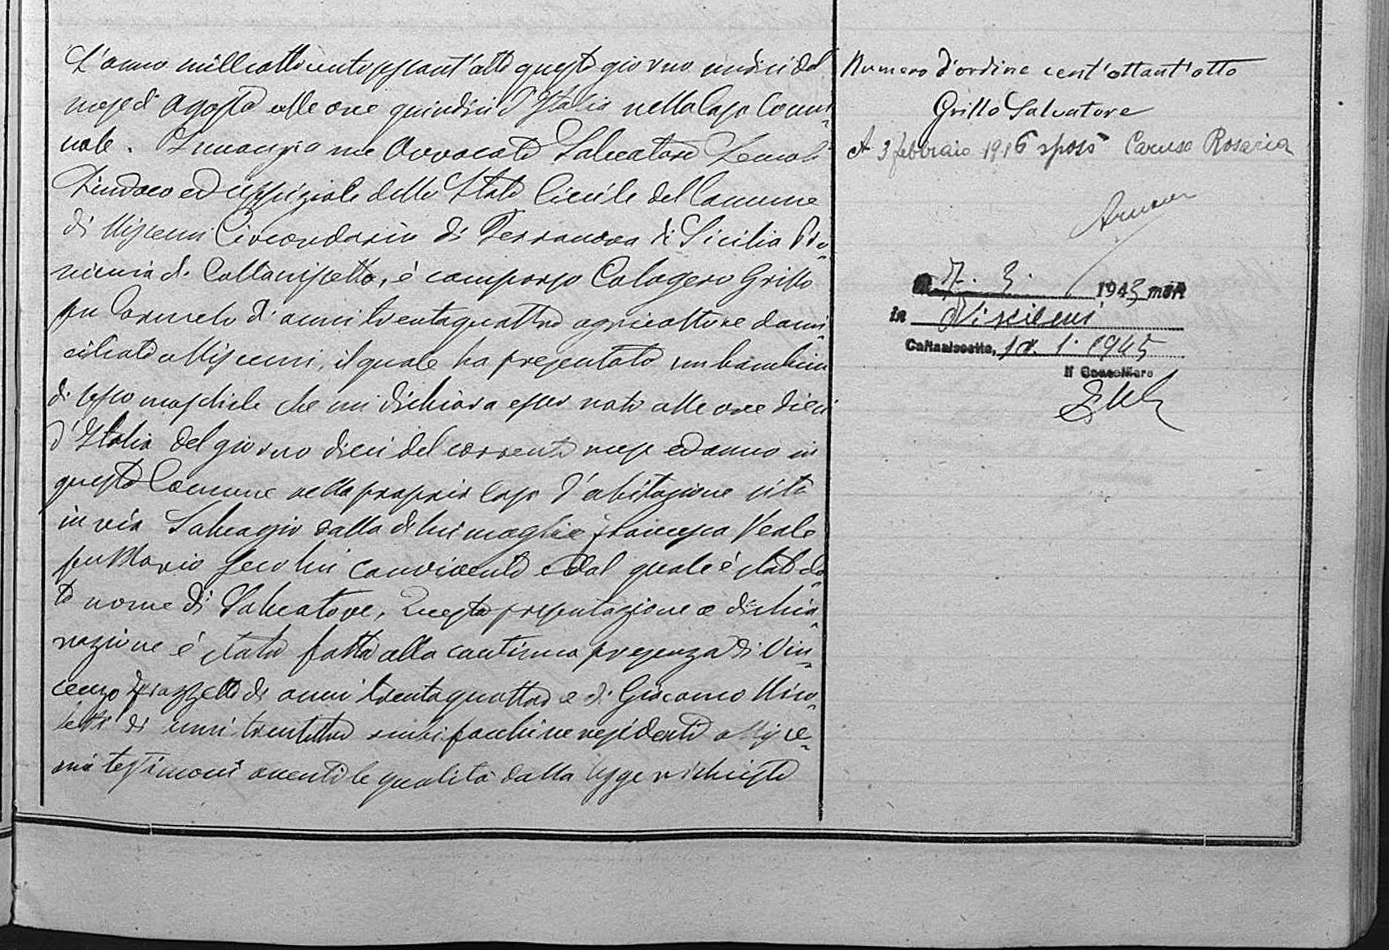 L'anno milleottocentosessant'otto questo giorno undici del
mese di Agosto alle ore quindici d'Italia nella Casa Comu-
nale. Innanzi a me Avvocato Salvatore
Sindaco ed uffiziale dello Stato Civile del Comune
di Niscemi Circondario di Terranova di Sicilia Pro-
vincia di Caltanissetta, è comparso Calogero Grillo
fu Carmelo di anni trentaquattro agricoltore domi-
ciliato a Niscemi, il quale ha presentato un bambino
di sesso maschile che mi dichiara esser nato alle ore dieci
d'Italia del giorno dieci del corrente mese ed anno in
questo Comune nella propria Casa d'abitazione sita
in via dalla di lui moglie Francesca
fu Mario seco lui convivente e dal quale è stato da-
to nome di Salvatore, Questa presentazione e dichia-
razione è stata fatta alla continua presenza di Vin-
cenzo di anni trentaquattro e di Giacomo
di anni ambi residenti a Nisce-
mi testimoni aventi le qualità dalla legge richieste
Numero d'ordine cent'ottant'otto
Grillo Salvatore
A 3 febbraio 1916 sposò Caruso Rosaria
7. 3. 1943 morì
in Niscemi
Caltanissetta, 1945
Il Cancelliere